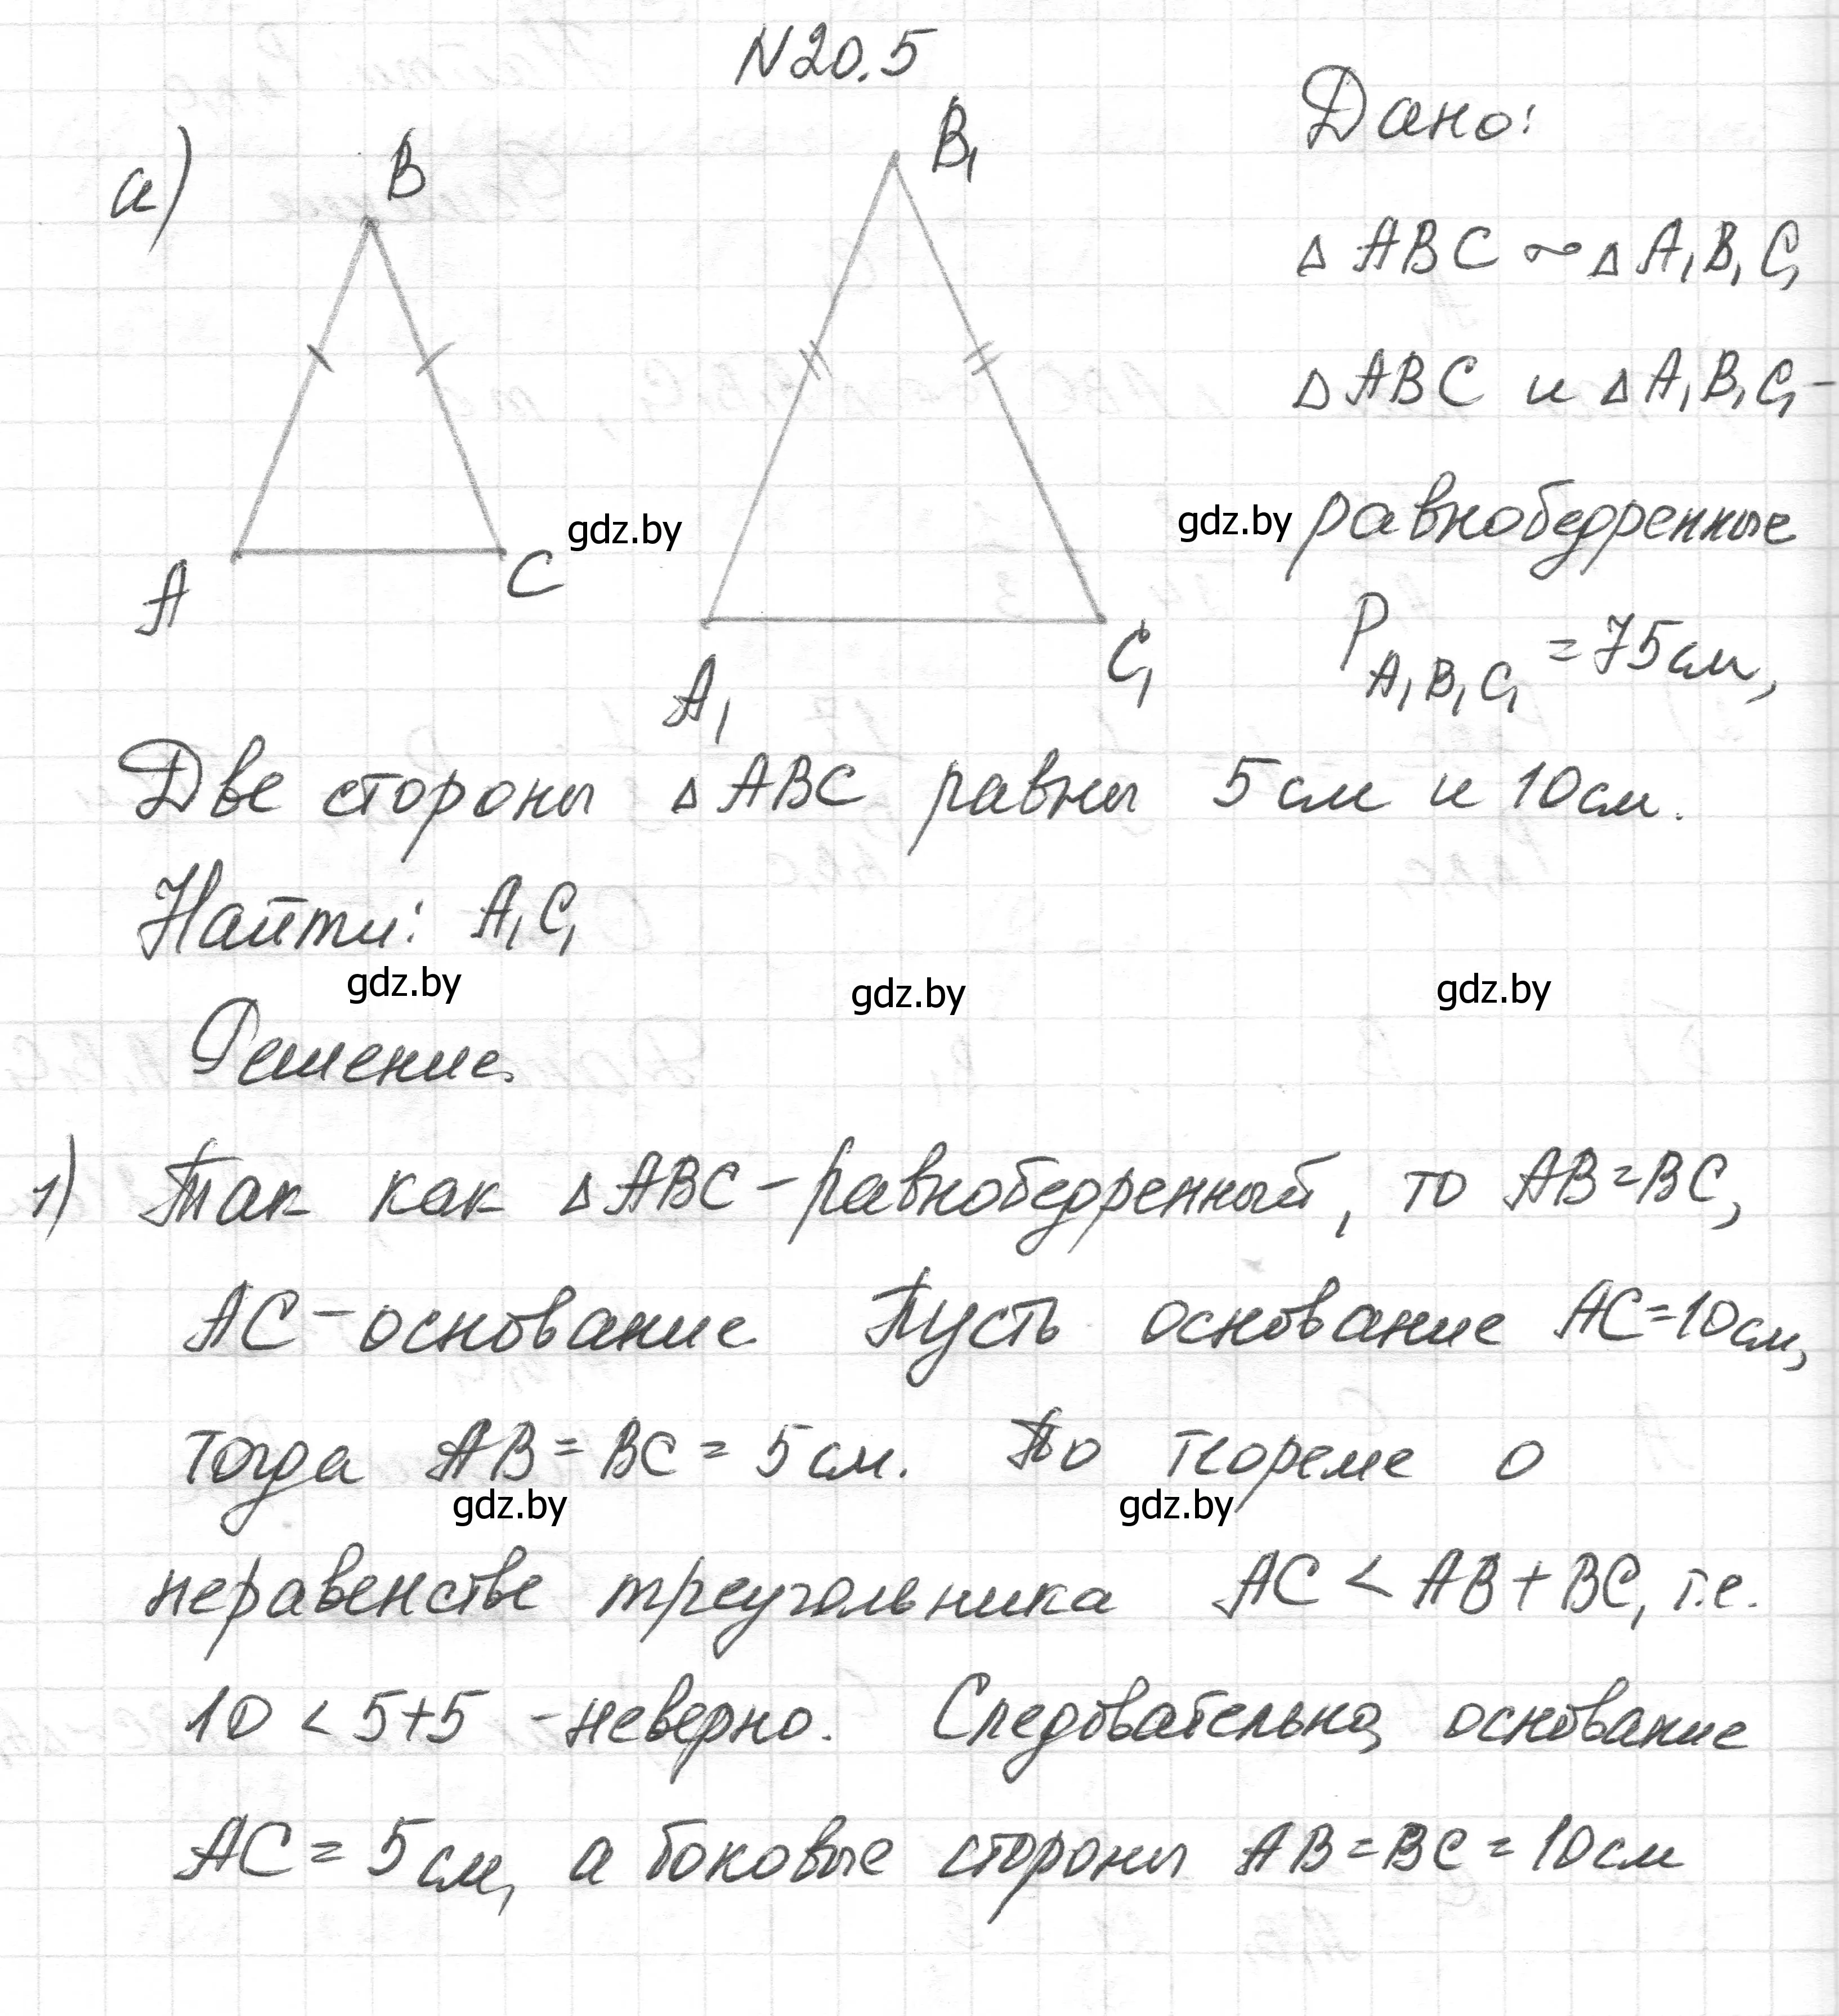 N20.5
а)
B
B₁
A
C
A₁
C₁
Дано:
△ABC ~ △A₁B₁C₁
△ABC и △A₁B₁C₁ –
равнобедренные
P A₁B₁C₁ = 75см,
gdz.by
gdz.by
Две стороны △ABC равны 5см и 10см.
Найти: A₁C₁
gdz.by
gdz.by
gdz.by
Решение.
1) Так как △ABC – равнобедренный, то AB=BC,
AC – основание Пусть основание AC=10см,
тогда AB = BC = 5см. По теореме о
gdz.by
gdz.by
неравенстве треугольника AC < AB + BC, т.е.
10 < 5+5 – неверно. Следовательно, основание
AC = 5см, а боковые стороны AB = BC = 10см